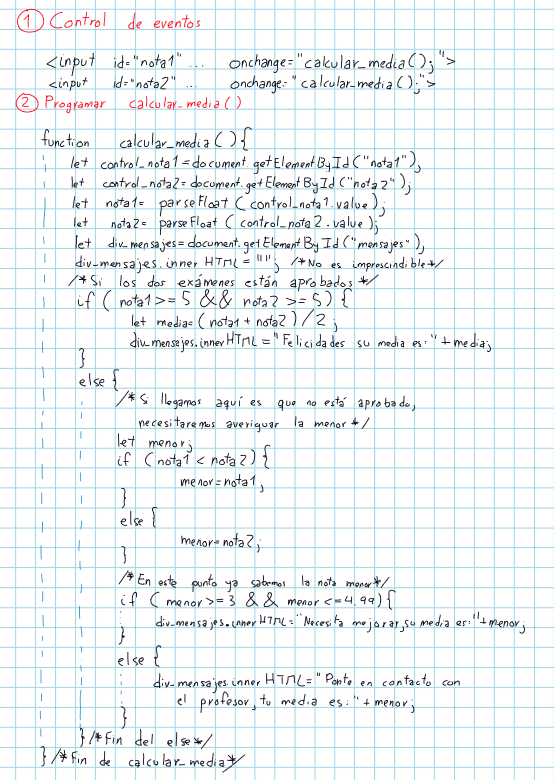 1 Control de eventos
<input id="nota1" ... onchange="calcular_media();">
<input id="nota2" ... onchange="calcular_media();">
2 Programar calcular_media()
function calcular_media(){
let control_nota1=document.getElementById("nota1");
let control_nota2=document.getElementById("nota2");
let nota1= parseFloat(control_nota1.value);
let nota2= parseFloat(control_nota2.value);
let div_mensajes=document.getElementById("mensajes");
div_mensajes.innerHTML=""; /*No es imprescindible*/
/*Si los dos exámenes están aprobados*/
if (nota1>=5 && nota2>=5){
let media=(nota1+nota2)/2;
div_mensajes.innerHTML="Felicidades su media es:"+media;
}
else{
/*Si llegamos aquí es que no está aprobado,
necesitaremos averiguar la menor*/
let menor;
if (nota1<nota2){
menor=nota1;
}
else{
menor=nota2;
}
/*En este punto ya sabemos la nota menor*/
if (menor>=3 && menor<=4.99){
div_mensajes.innerHTML="Necesita mejorar,su media es:"+menor;
}
else{
div_mensajes.innerHTML="Ponte en contacto con
el profesor, tu media es:"+menor;
}
}/*Fin del else*/
}/*Fin de calcular_media*/